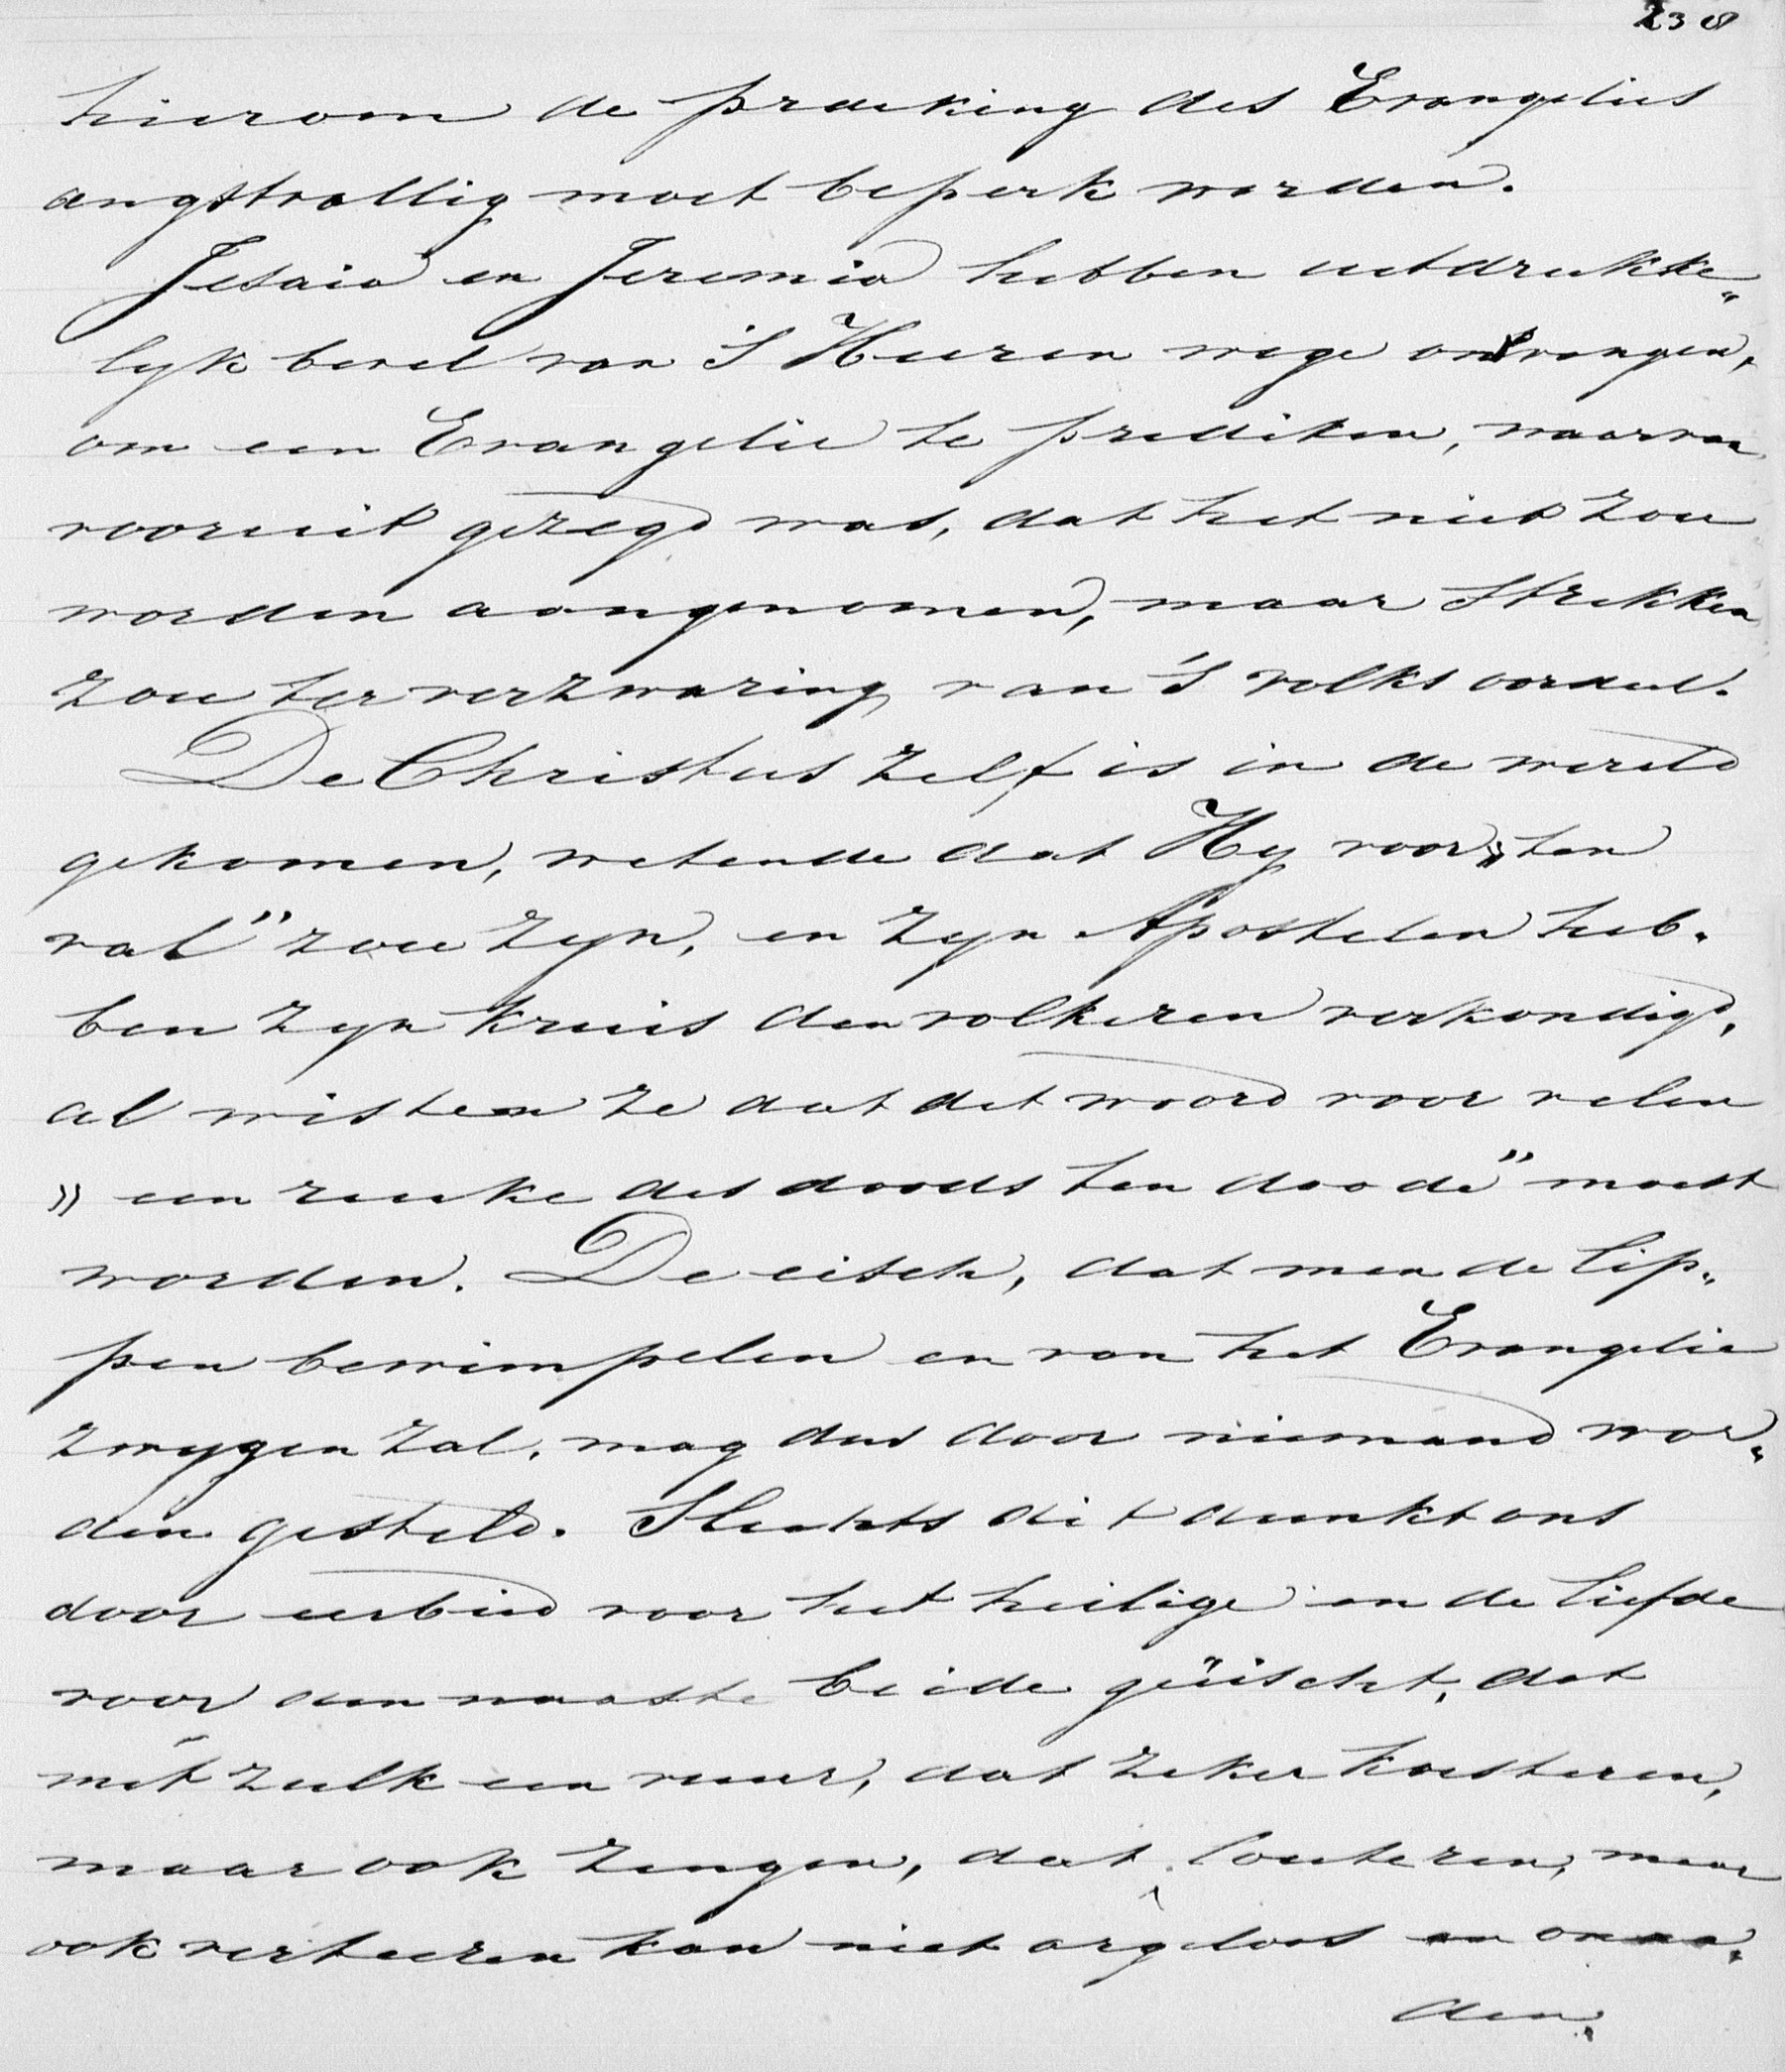 238
hierom de prediking des Evangelies
angstvallig moet beperk worden.
Jesaia en Jeremia hebben uitdrukke„
lyk bevel van 's Heeren wege ontvangen,
om een Evangelie te prediken, waarvan
vooruit gezegd was, dat het niet zou
worden aangenomen, maar strekken
zou ter verzwaring van 's volks oordeel.
De Christus zelf is in de wereld
gekomen, wetende dat Hy voor „ten
val" zou zyn, en zyn Apostelen heb„
ben zyn kruis den volkeren verkondigd,
al wisten ze dat dit woord voor velen
„een reuke des doods ten doode" moest
worden. De eisch, dat men de lip„
pen bewimpelen en van het Evangelie
zwygen zal, mag dus door niemand wor„
den gesteld. Slechts dit dunkt ons
door eerbied voor het heilige en de liefde
voor den naaste beide geëischt, dat
mèt zulk een vuur, dat zeker koesteren,
maar ook zengen, dat louteren, maar
ook verteeren kan niet argeloos en
den.